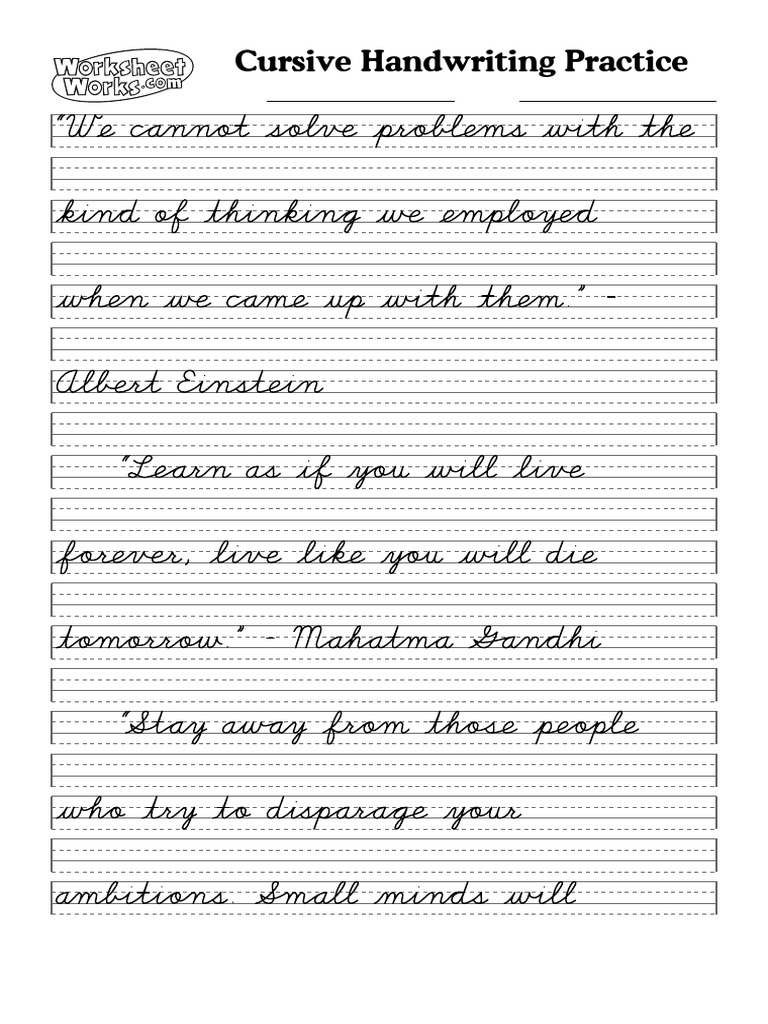 Worksheet
Works.com
Cursive Handwriting Practice
"We cannot solve problems with the
kind of thinking we employed
when we came up with them." -
Albert Einstein
"Learn as if you will live
forever, live like you will die
tomorrow." - Mahatma Gandhi
"Stay away from those people
who try to disparage your
ambitions. Small minds will